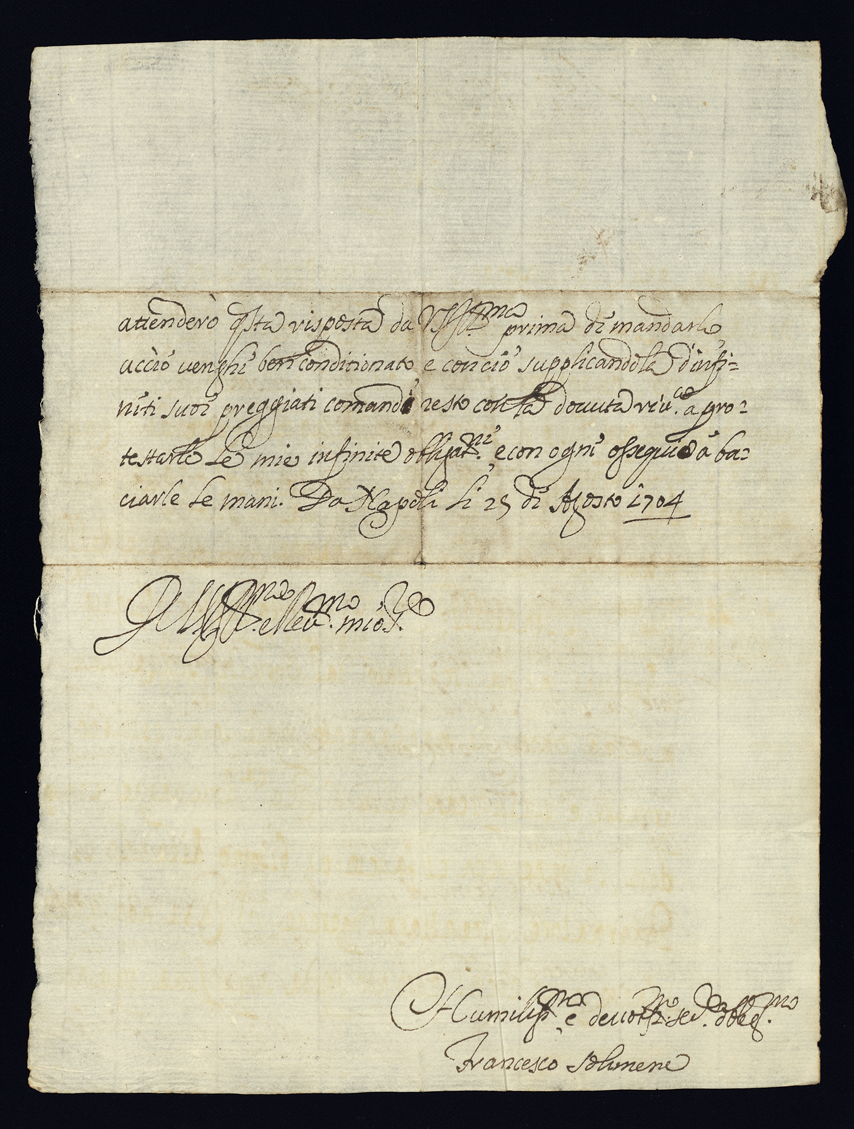 attenderò qsta risposta da VSIll.ma prima di mandarlo
acciò venghi ben conditionato e con ciò supplicandola d'infi=
niti suoi preggiati comandi resto con la douuta riu.za a pro=
testarle le mie infinite obligat.ni e con ogni ossequio à ba=
ciarle le mani. Da Napoli li 25 di Agosto 1704
Di VSIll.ma
e Reu.mo mio S.re
Humiliss.mo e deuotiss.mo ser.re oblig.mo
Francesco Solimene